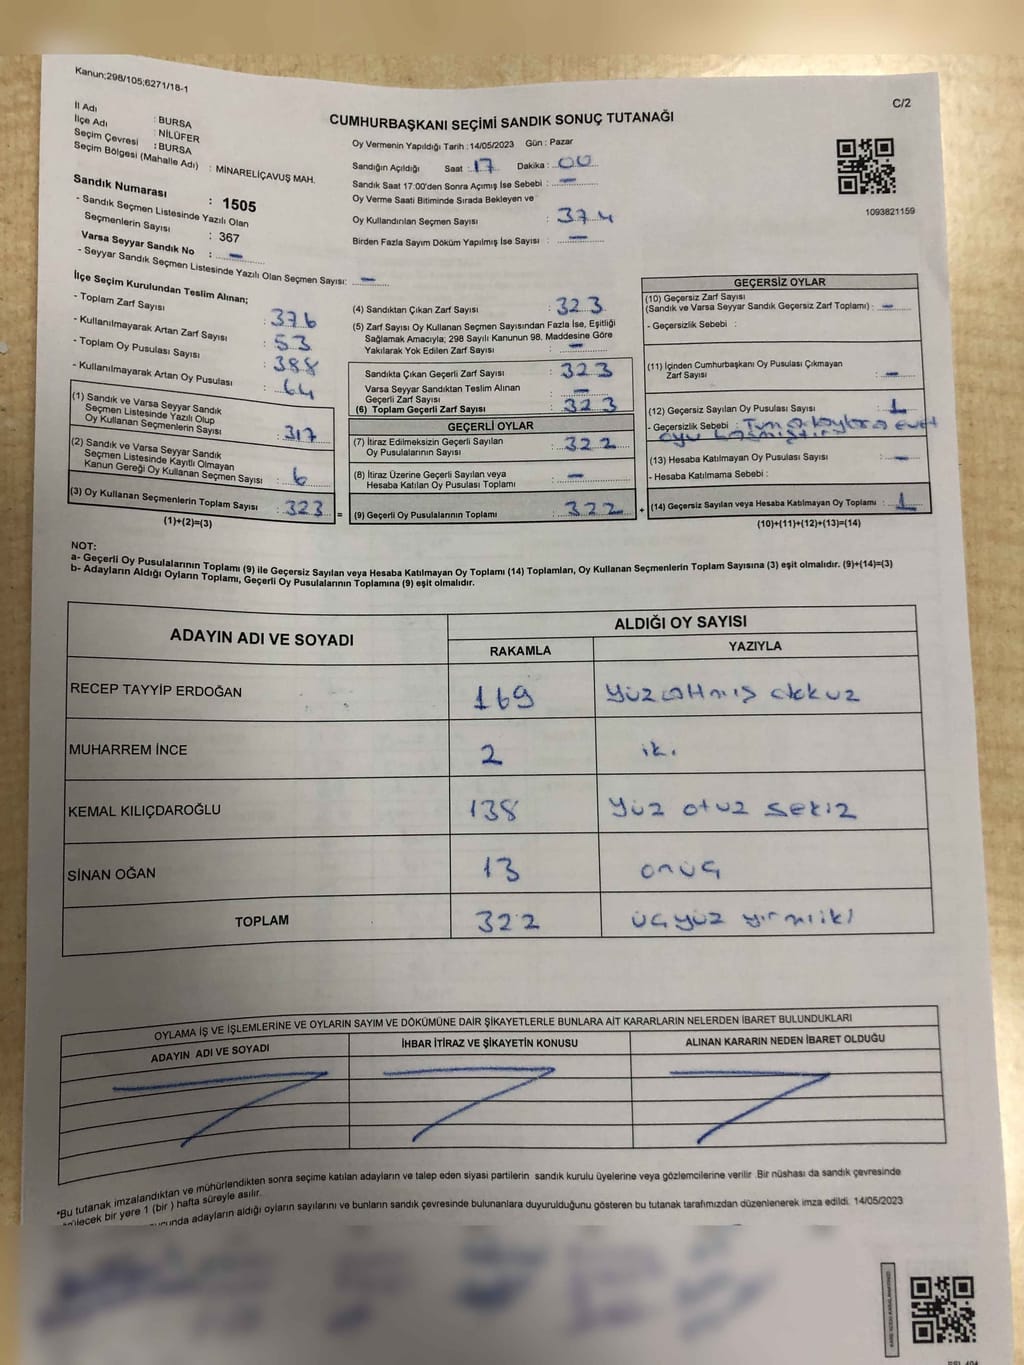 Kanun;298/105;6271/18-1
C/2
CUMHURBAŞKANI SEÇİMİ SANDIK SONUÇ TUTANAĞI
İl Adı : BURSA
İlçe Adı : NİLÜFER
Seçim Çevresi : BURSA
Seçim Bölgesi (Mahalle Adı) : MİNARELİÇAVUŞ MAH.
Sandık Numarası : 1505
- Sandık Seçmen Listesinde Yazılı Olan
Seçmenlerin Sayısı : 367
Varsa Seyyar Sandık No : —
- Seyyar Sandık Seçmen Listesinde Yazılı Olan Seçmen Sayısı: —
Oy Vermenin Yapıldığı Tarih : 14/05/2023 Gün : Pazar
Sandığın Açıldığı Saat : 17 Dakika : 00
Sandık Saat 17:00'den Sonra Açımış İse Sebebi : —
Oy Verme Saati Bitiminde Sırada Bekleyen ve
Oy Kullandırılan Seçmen Sayısı : 374
Birden Fazla Sayım Döküm Yapılmış İse Sayısı : —
1093821159
İlçe Seçim Kurulundan Teslim Alınan;
- Toplam Zarf Sayısı : 376
- Kullanılmayarak Artan Zarf Sayısı : 53
- Toplam Oy Pusulası Sayısı : 388
- Kullanılmayarak Artan Oy Pusulası : 64
(1) Sandık ve Varsa Seyyar Sandık
Seçmen Listesinde Yazılı Olup
Oy Kullanan Seçmenlerin Sayısı : 317
(2) Sandık ve Varsa Seyyar Sandık
Seçmen Listesinde Kayıtlı Olmayan
Kanun Gereği Oy Kullanan Seçmen Sayısı : 6
(3) Oy Kullanan Seçmenlerin Toplam Sayısı : 323
(1)+(2)=(3)
(4) Sandıktan Çıkan Zarf Sayısı : 323
(5) Zarf Sayısı Oy Kullanan Seçmen Sayısından Fazla İse, Eşitliği
Sağlamak Amacıyla; 298 Sayılı Kanunun 98. Maddesine Göre
Yakılarak Yok Edilen Zarf Sayısı : —
Sandıkta Çıkan Geçerli Zarf Sayısı : 323
Varsa Seyyar Sandıktan Teslim Alınan
Geçerli Zarf Sayısı : —
(6) Toplam Geçerli Zarf Sayısı : 323
GEÇERLİ OYLAR
(7) İtiraz Edilmeksizin Geçerli Sayılan
Oy Pusulalarının Sayısı : 322
(8) İtiraz Üzerine Geçerli Sayılan veya
Hesaba Katılan Oy Pusulası Toplamı : —
= (9) Geçerli Oy Pusulalarının Toplamı : 322 +
GEÇERSİZ OYLAR
(10) Geçersiz Zarf Sayısı
(Sandık ve Varsa Seyyar Sandık Geçersiz Zarf Toplamı) : —
- Geçersizlik Sebebi :
(11) İçinden Cumhurbaşkanı Oy Pusulası Çıkmayan
Zarf Sayısı : —
(12) Geçersiz Sayılan Oy Pusulası Sayısı : 1
- Geçersizlik Sebebi : Tüm adaylara evet
oyu basmıştır
(13) Hesaba Katılmayan Oy Pusulası Sayısı : —
- Hesaba Katılmama Sebebi :
(14) Geçersiz Sayılan veya Hesaba Katılmayan Oy Toplamı : 1
(10)+(11)+(12)+(13)=(14)
NOT:
a- Geçerli Oy Pusulalarının Toplamı (9) ile Geçersiz Sayılan veya Hesaba Katılmayan Oy Toplamı (14) Toplamları, Oy Kullanan Seçmenlerin Toplam Sayısına (3) eşit olmalıdır. (9)+(14)=(3)
b- Adayların Aldığı Oyların Toplamı, Geçerli Oy Pusulalarının Toplamına (9) eşit olmalıdır.
ADAYIN ADI VE SOYADI
ALDIĞI OY SAYISI
RAKAMLA YAZIYLA
RECEP TAYYİP ERDOĞAN 169 yüzaltmış dokuz
MUHARREM İNCE 2 iki
KEMAL KILIÇDAROĞLU 138 yüz otuz sekiz
SİNAN OĞAN 13 onüç
TOPLAM 322 üçyüz yirmiiki
OYLAMA İŞ VE İŞLEMLERİNE VE OYLARIN SAYIM VE DÖKÜMÜNE DAİR ŞİKAYETLERLE BUNLARA AİT KARARLARIN NELERDEN İBARET BULUNDUKLARI
ADAYIN ADI VE SOYADI İHBAR İTİRAZ VE ŞİKAYETİN KONUSU ALINAN KARARIN NEDEN İBARET OLDUĞU
*Bu tutanak imzalandıktan ve mühürlendikten sonra seçime katılan adayların ve talep eden siyasi partilerin sandık kurulu üyelerine veya gözlemcilerine verilir. Bir nüshası da sandık çevresinde
bir yere 1 (bir ) hafta süreyle asılır.
adayların aldığı oyların sayılarını ve bunların sandık çevresinde bulunanlara duyurulduğunu gösteren bu tutanak tarafımızdan düzenlenerek imza edildi. 14/05/2023